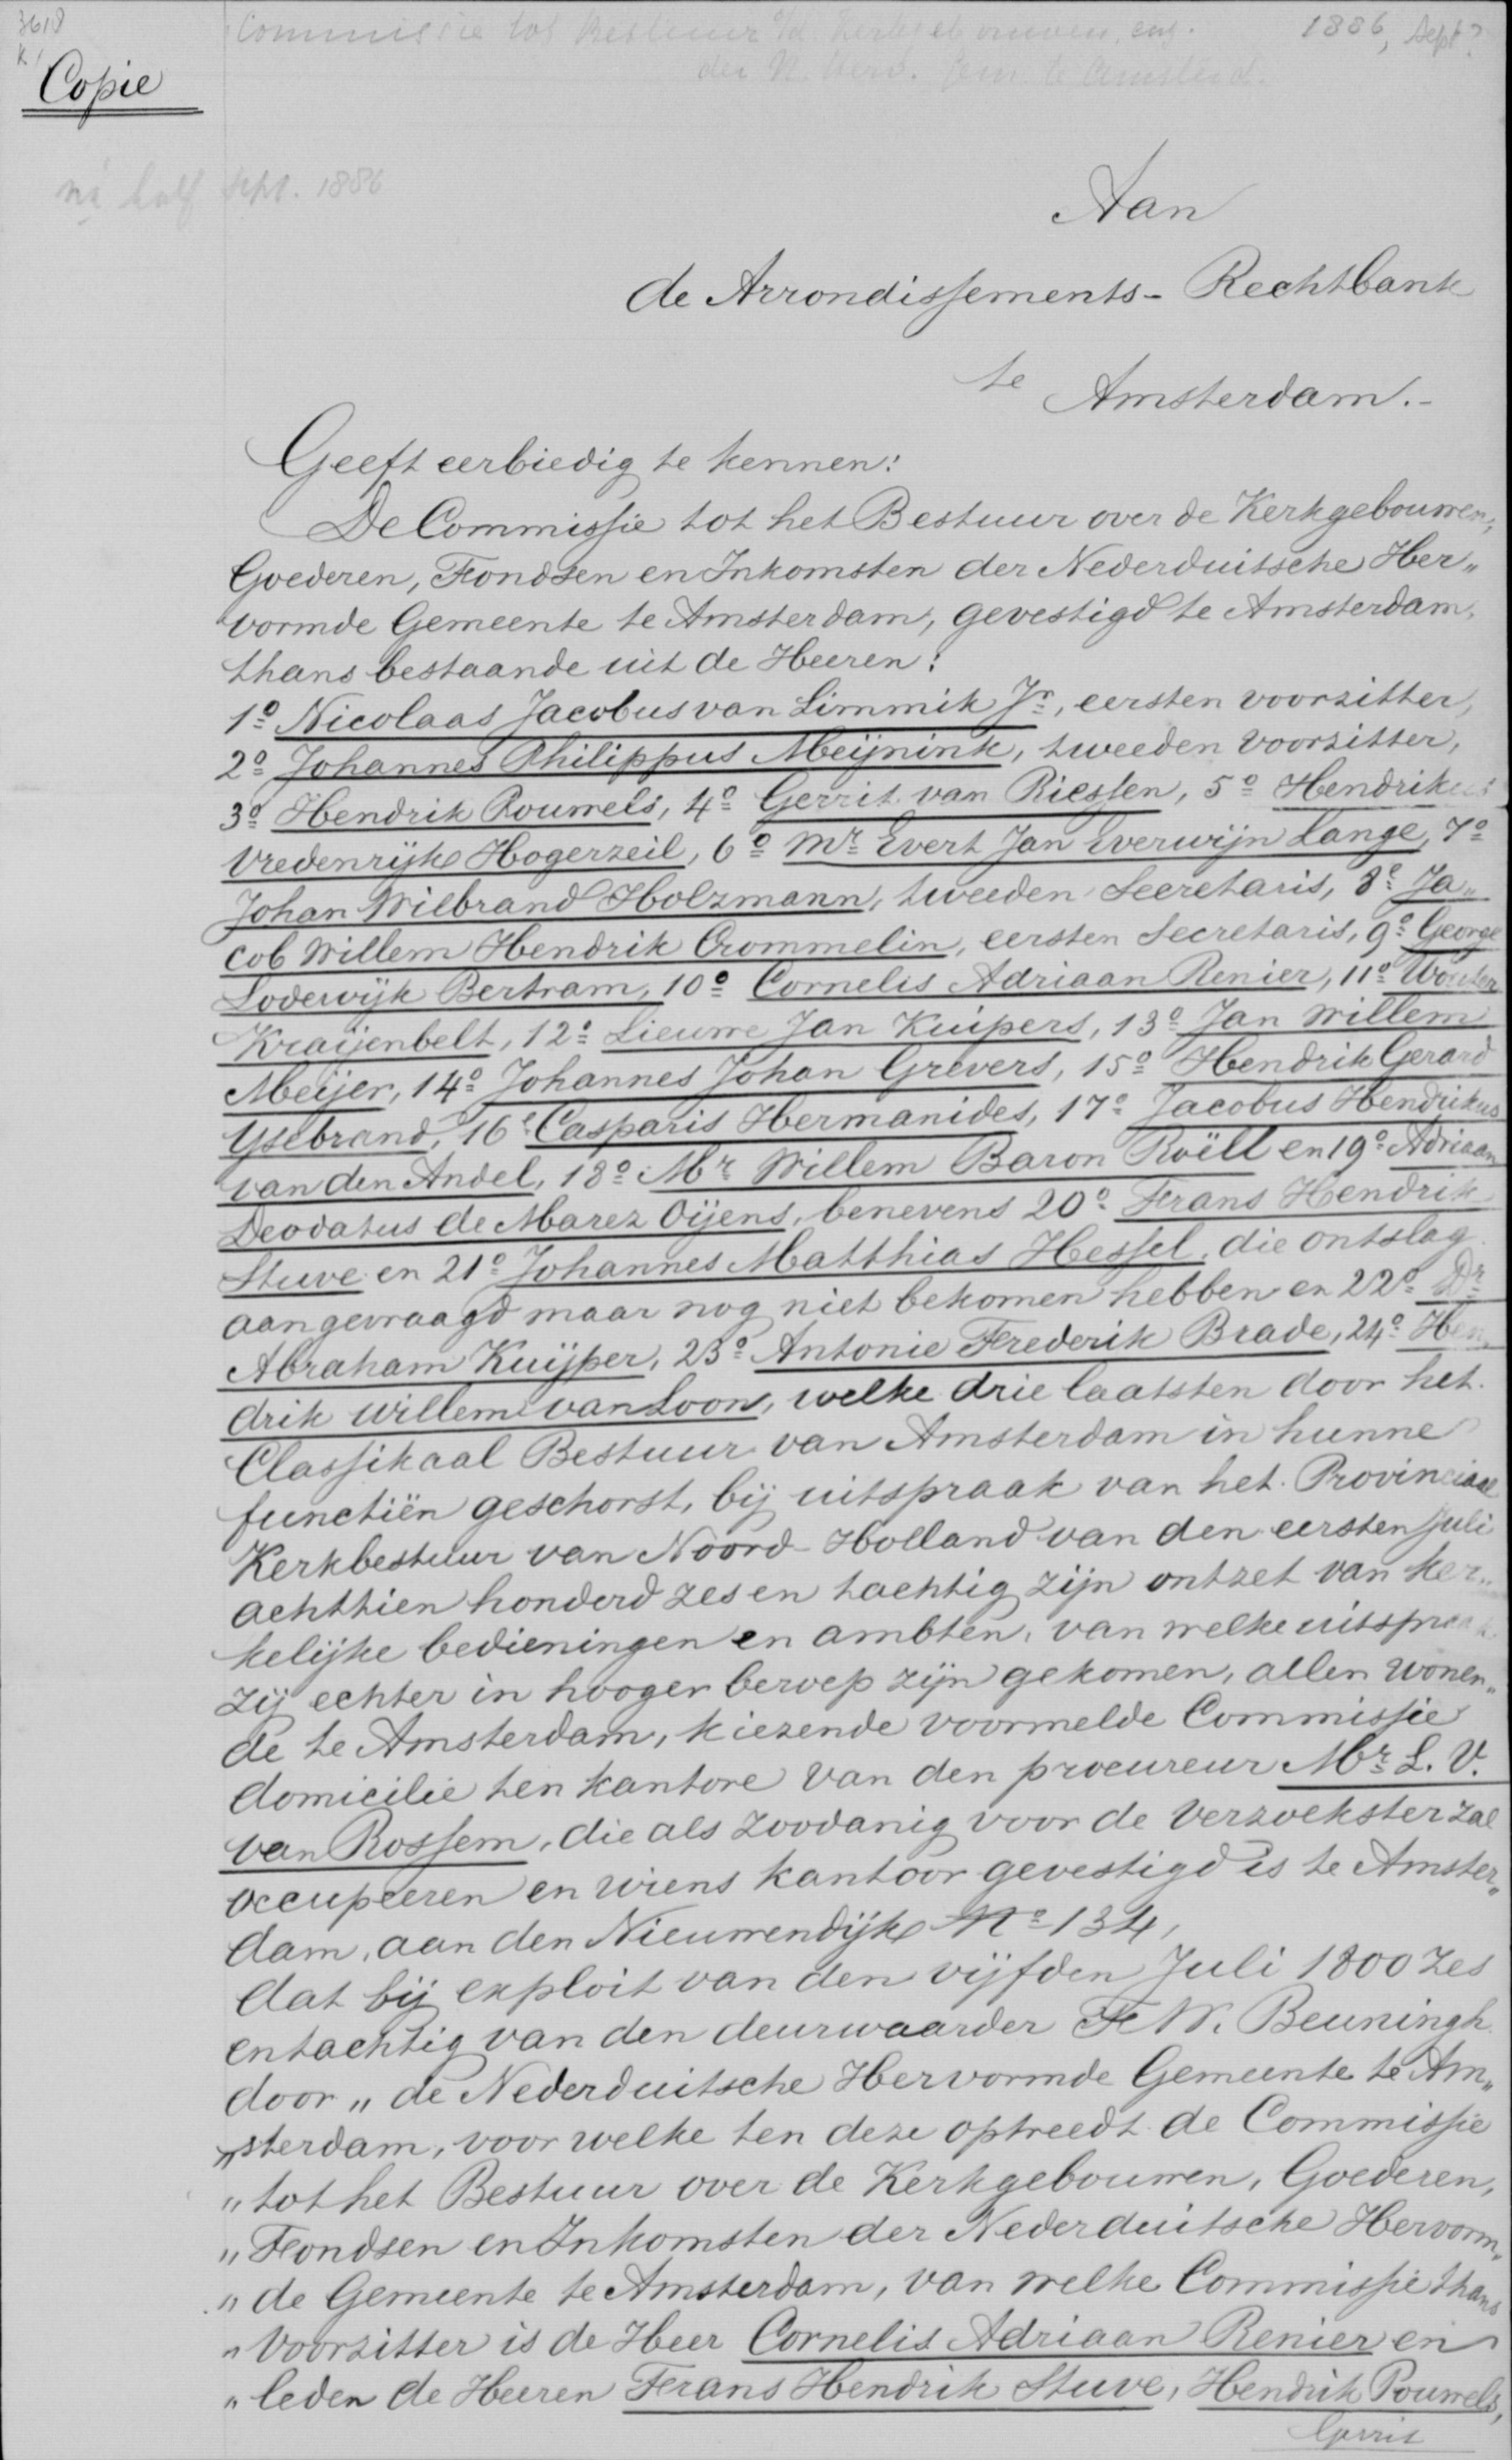 3618
K1
Commissie tot Bestuur o/d Kerkgebouwen, enz.
1886, Sept?
der N. Herv. Gem. te Amsterd.
Copie
ná half Sept. 1886
Aan
de Arrondissements-Rechtbank
te Amsterdam.-
Geeft eerbiedig te kennen:
De Commissie tot het Bestuur over de Kerkgebouwen,
Goederen, Fondsen en Inkomsten der Nederduitsche Her„
vormde Gemeente te Amsterdam, gevestigd te Amsterdam,
thans bestaande uit de Heeren:
1º Nicolaas Jacobus van Limmik Jr, eersten voorzitter,
2º Johannes Philippus Meijnink, tweeden voorzitter,
3º Hendrik Pouwels, 4º Gerrit van Riessen, 5º Hendrikus
Vredenrijk Hogerzeil, 6º Mr Evert Jan Everwijn Lange, 7º
Johan Wilbrand Holzmann, tweeden Secretaris, 8º Ja„
cob Willem Hendrik Crommelin, eersten Secretaris, 9º George
Lodewijk Bertram, 10º Cornelis Adriaan Renier, 11º Wouter
Kraijenbelt, 12º Lieuwe Jan Kuipers, 13º Jan Willem
Meijer, 14º Johannes Johan Grevers, 15º Hendrik Gerard
Ysebrand, 16º Casparis Hermanides, 17º Jacobus Hendrikus
van den Andel, 18º Mr Willem Baron Roëll en 19º Adriaan
Deodatus de Marez Oijens, benevens 20º Frans Hendrik
Stuve en 21º Johannes Matthias Hessel, die ontslag
aangevraagd maar nog niet bekomen hebben en 22º Dr
Abraham Kuijper, 23º Antonie Frederik Brade, 24º Hen„
drik Willem van Loon, welke drie laatsten door het
Classikaal Bestuur van Amsterdam in hunne
functiën geschorst, bij uitspraak van het Provinciaal
Kerkbestuur van Noord-Holland van den eersten Juli
achttien honderd zes en tachtig zijn ontzet van ker„
kelijke bedieningen en ambten, van welke uitspraak
zij echter in hooger beroep zijn gekomen, allen wonen„
de te Amsterdam, kiezende voormelde Commissie
domicilie ten kantore van den procureur Mr L. V.
van Rossem, die als zoodanig voor de verzoekster zal
occupeeren en wiens kantoor gevestigd is te Amster„
dam, aan den Nieuwendijk No 134,
dat bij exploit van den vijfden Juli 1800 zes
en tachtig van den deurwaarder F. W. Beuningh
door „de Nederduitsche Hervormde Gemeente te Am„
„sterdam, voor welke ten deze optreedt de Commissie
„tot het Bestuur over de Kerkgebouwen, Goederen,
„Fondsen en Inkomsten der Nederduitsche Hervorm„
„de Gemeente te Amsterdam, van welke Commissie thans
„Voorzitter is de Heer Cornelis Adriaan Renier en
„leden de Heeren Frans Hendrik Stuve, Hendrik Pouwels,
Gerrit